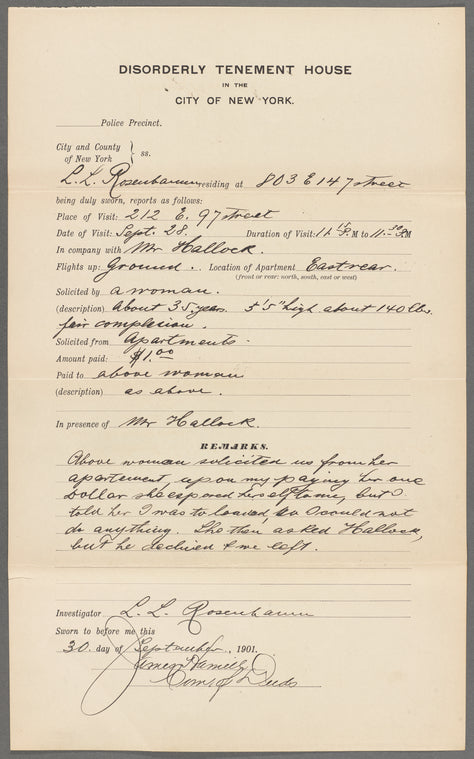 DISORDERLY TENEMENT HOUSE
IN THE
CITY OF NEW YORK.
Police Precinct.
City and County
of New York } ss.
L. L. Rosenbaum residing at 803 E 147 street
being duly sworn, reports as follows:
Place of Visit: 212 E. 97 street
Date of Visit: Sept. 28. Duration of Visit: 11 15 P.M to 11-30 P.M
In company with Mr Hallock.
Flights up: Ground. Location of Apartment East rear.
(front or rear: north, south, east or west)
Solicited by a woman.
(description) about 35 years. 5'5" high about 140 lbs.
fair complexion.
Solicited from apartments.
Amount paid: $1.00
Paid to above woman
(description) as above.
In presence of Mr Hallock.
REMARKS.
Above woman solicited us from her
apartement, upon my paying her one
Dollar she exposed herself to me, but I
told her I was to loaded, so I could not
do anything. She then asked Hallock,
but he declined & we left.
Investigator L. L. Rosenbaum
Sworn to before me this
30 day of September, 1901.
Com of Deeds